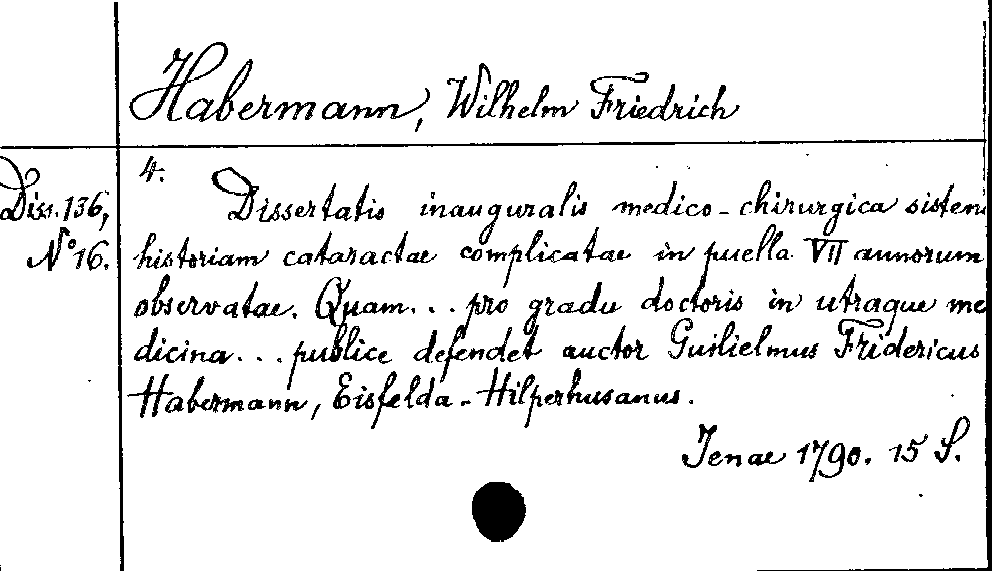 Habermann, Wilhelm Friedrich
4.
Diss. 136,
No 16.
Dissertatio inauguralis medico-chirurgica sisten
historiam cataractae complicatae in puella VII annorum
observatae. Quam... pro gradu doctoris in utraque me
dicina... publice defendet auctor Guilielmus Fridericus
Habermann, Eisfelda-Hilperhusanus.
Jenae 1790. 15 S.